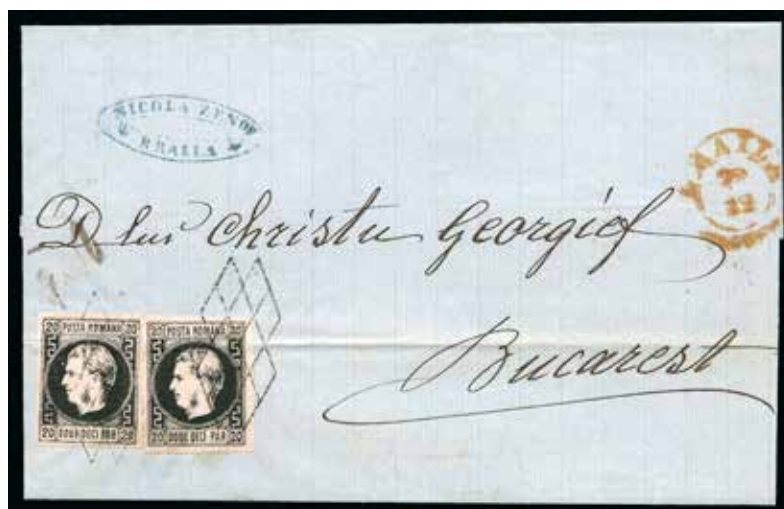 NICOLA ZENOF
BRAILA
BRAILA
12
D lui Christu Georgief
Bucarest
20 POSTA ROMANA 20
DOUE DECI PAR
20 20
20 POSTA ROMANA 20
DOUE DECI PAR
20 20